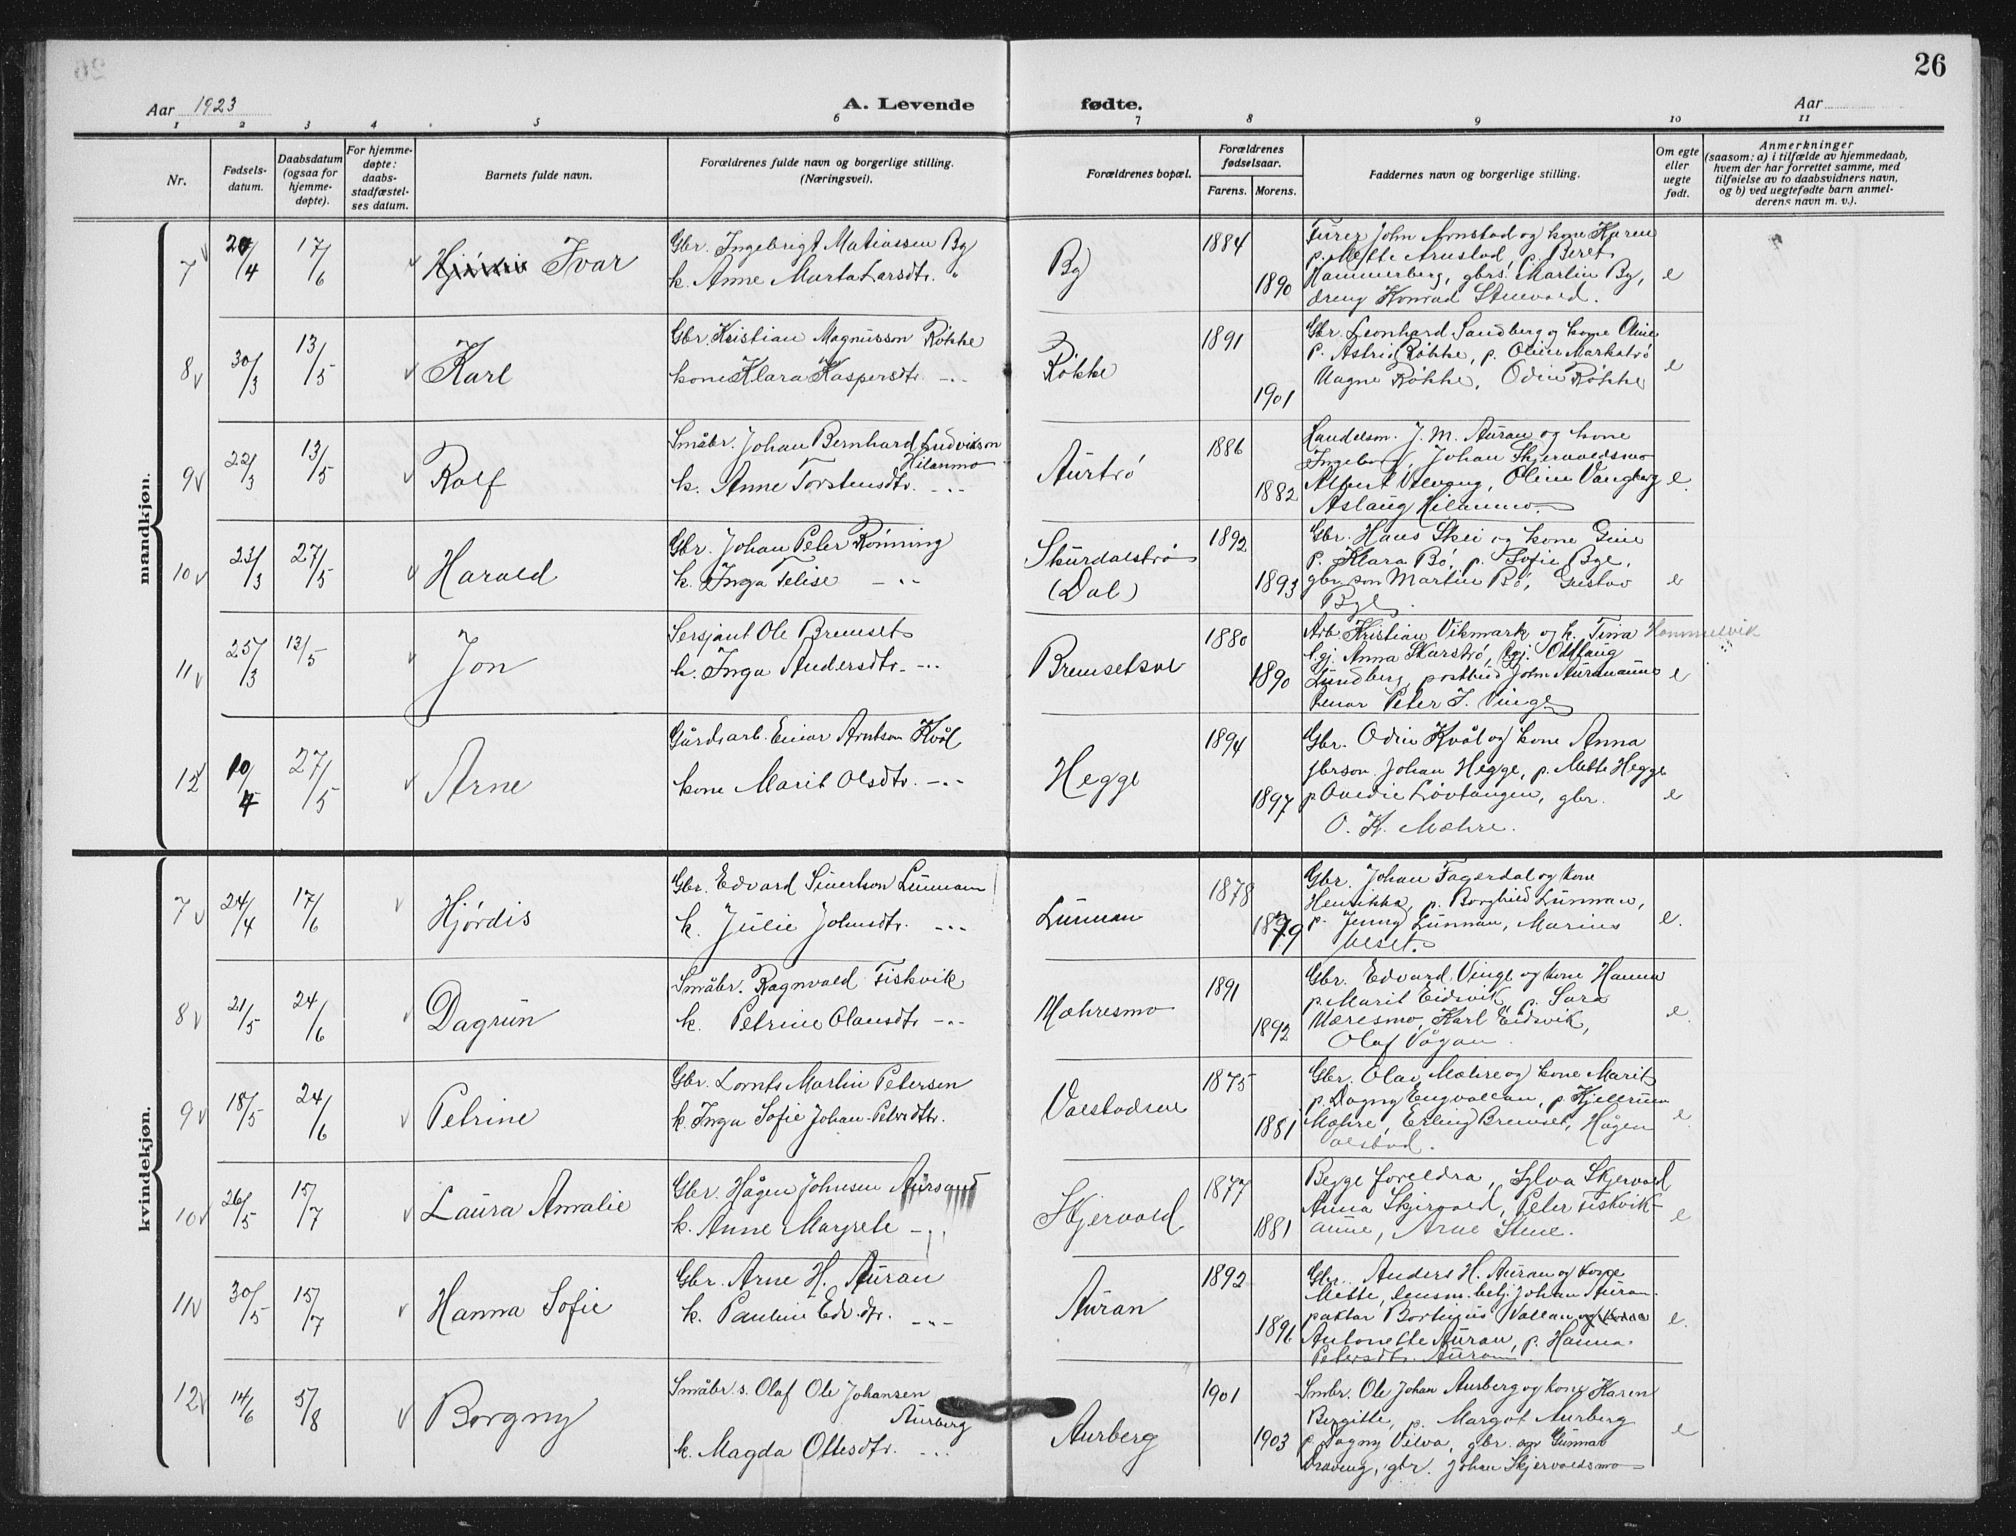 26
Aar 1923
A. Levende
fødte.
Aar
1 2 3 4 5 6 7 8 9 10 11
Nr.
Fødsels-
datum.
Daabsdatum
(ogsaa for
hjemme-
døpte).
For hjemme-
døpte:
daabs-
stadfæstel-
ses datum.
Barnets fulde navn.
Forældrenes fulde navn og borgerlige stilling.
(Næringsvei).
Forældrenes bopæl.
Forældrenes
fødselsaar.
Farens. Morens.
Faddernes navn og borgerlige stilling.
Om egte
eller
uegte
født.
Anmerkninger
(saasom: a) i tilfælde av hjemmedaab,
hvem der har forrettet samme, med
tilføielse av to daabsvidners navn,
og b) ved uegtefødte barn anmel-
derens navn m. v.).
mandkjøn.
7 20/4 17/6 Ivar
Gbr. Ingebrigt Matiassen By
k. Anne Marta Larsdtr. "
By 1884 1890
Furer John Arnstad og kone Karen
p. Mette Arnstad, p. Beret
Hammerberg, gbrs. Martin By,
dreng Konrad Stenvold.
e
8 30/3 13/5 Karl
Gbr. Kristian Magnussen Røkke
kone Klara Kaspersdtr. -"-
Røkke 1891 1901
Gbr. Leonhard Sandberg og kone Oline,
p. Astrid Røkke, p. Oline Markstrø
Magne Røkke, Odin Røkke
e
9 22/3 13/5 Rolf
Småbr. Johan Bernhard Ludvikson
Hilanmo
k. Anne Torstensdtr. -"-
Aurtrø 1886 1882
Handelsm. J. M. Auran og kone
Ingeborg, Johan Skjervoldsmo
Albert Vilvang, Oline Vangberg
Aslaug Hilanmo.
e.
10 23/3 27/5 Harald
Gbr. Johan Peter Rönning
k. Inga Felise -"-
Skurdalstrø
(Dal)
1892 1893
Gbr. Hans Skei og kone Gine
p. Klara Bø, p. Sofie Bye,
gbr. søn Martin Bø, Gustav
Bye.
e
11 25/3 13/5 Jon
Sersjant Ole Bremset
k. Inga Andersdtr. -"-
Bremsetsve 1880 1890
Arb. Kristian Vikmark og k. Tina Hommelvik
t.gj. Anna Skarstrø, tgj. Oddlaug
Lundberg, postbud John Auranaune
Peter J. Vinge
e
12 10/4 27/5 Arne
Gårdsarb. Einar Arntsen Kvål
kone Marit Olsdtr. -"-
Hegge 1894 1897
Gbr. Odin Kvål og kone Anna
gbrson Johan Hegge, p. Mette Hegge
p. Ovedie Løvtangen, gbr.
O. K. Mæhre.
e
kvindekjøn.
7 24/4 17/6 Hjørdis
Gbr. Edvard Sivertson Lunnan
k. Julie Johnsdtr. -"-
Lunnan 1878 1879
Gbr. Johan Fagerdal og kone
Henrikka, p. Borghild Lunnan,
p. Jenny Lunnan, Marius
e.
8 21/5 24/6 Dagrun
Småbr. Ragnvald Fiskvik
k. Petrine Olausdtr -"-
Mæhresmo 1891 1892
Gbr. Edvard Vinge og kone Hanna
p. Marit Eidsvik, p. Sara
Mæresmo, Karl Eidsvik,
Olaf Vågan.
e.
9 18/5 24/6 Petrine
Gbr. Lornts Martin Petersen
k. Inga Sofie Johan-Petersdtr.
Valstadsve 1875 1881
Gbr. Olav Mæhre og kone Marit
p. Dagny Engvallan, p. Kjellrun
Mæhre, Erling Bremset, Hågen
Valstad.
e.
10 26/5 15/7 Laura Amalie
Gbr. Hågen Johnsen Aursand
k. Anne Margrete -"-
Skjervold 1877 1881
Begge foreldra, Sylva Skjervold
Anna Skjervold, Peter Fiskvik-
aune, Arne Stene.
e
11 30/5 15/7 Hanna Sofie
Gbr. Arne H. Auran
k. Pauline Edv.dtr. -"-
Auran 1892 1896
Gbr. Anders H. Auran og kone
Mette, lensm. betj. Johan Auran.
paktar Bortinius Vallan og kone
Antonette Auran, p. Hanna
Petersdtr. Auran
e.
12 14/6 5/8 Borgny
Småbr.s. Olaf Ole Johansen
Aurberg
k. Magda Ottesdtr. -"-
Aurberg 1901 1903
Småbr. Ole Johan Aurberg og kone Karen
Bergitte, p. Margot Aurberg
p. Dagny Vilva, gbr. søn Gunnar
Draveng, gbr. Johan Skjervoldsmo
e